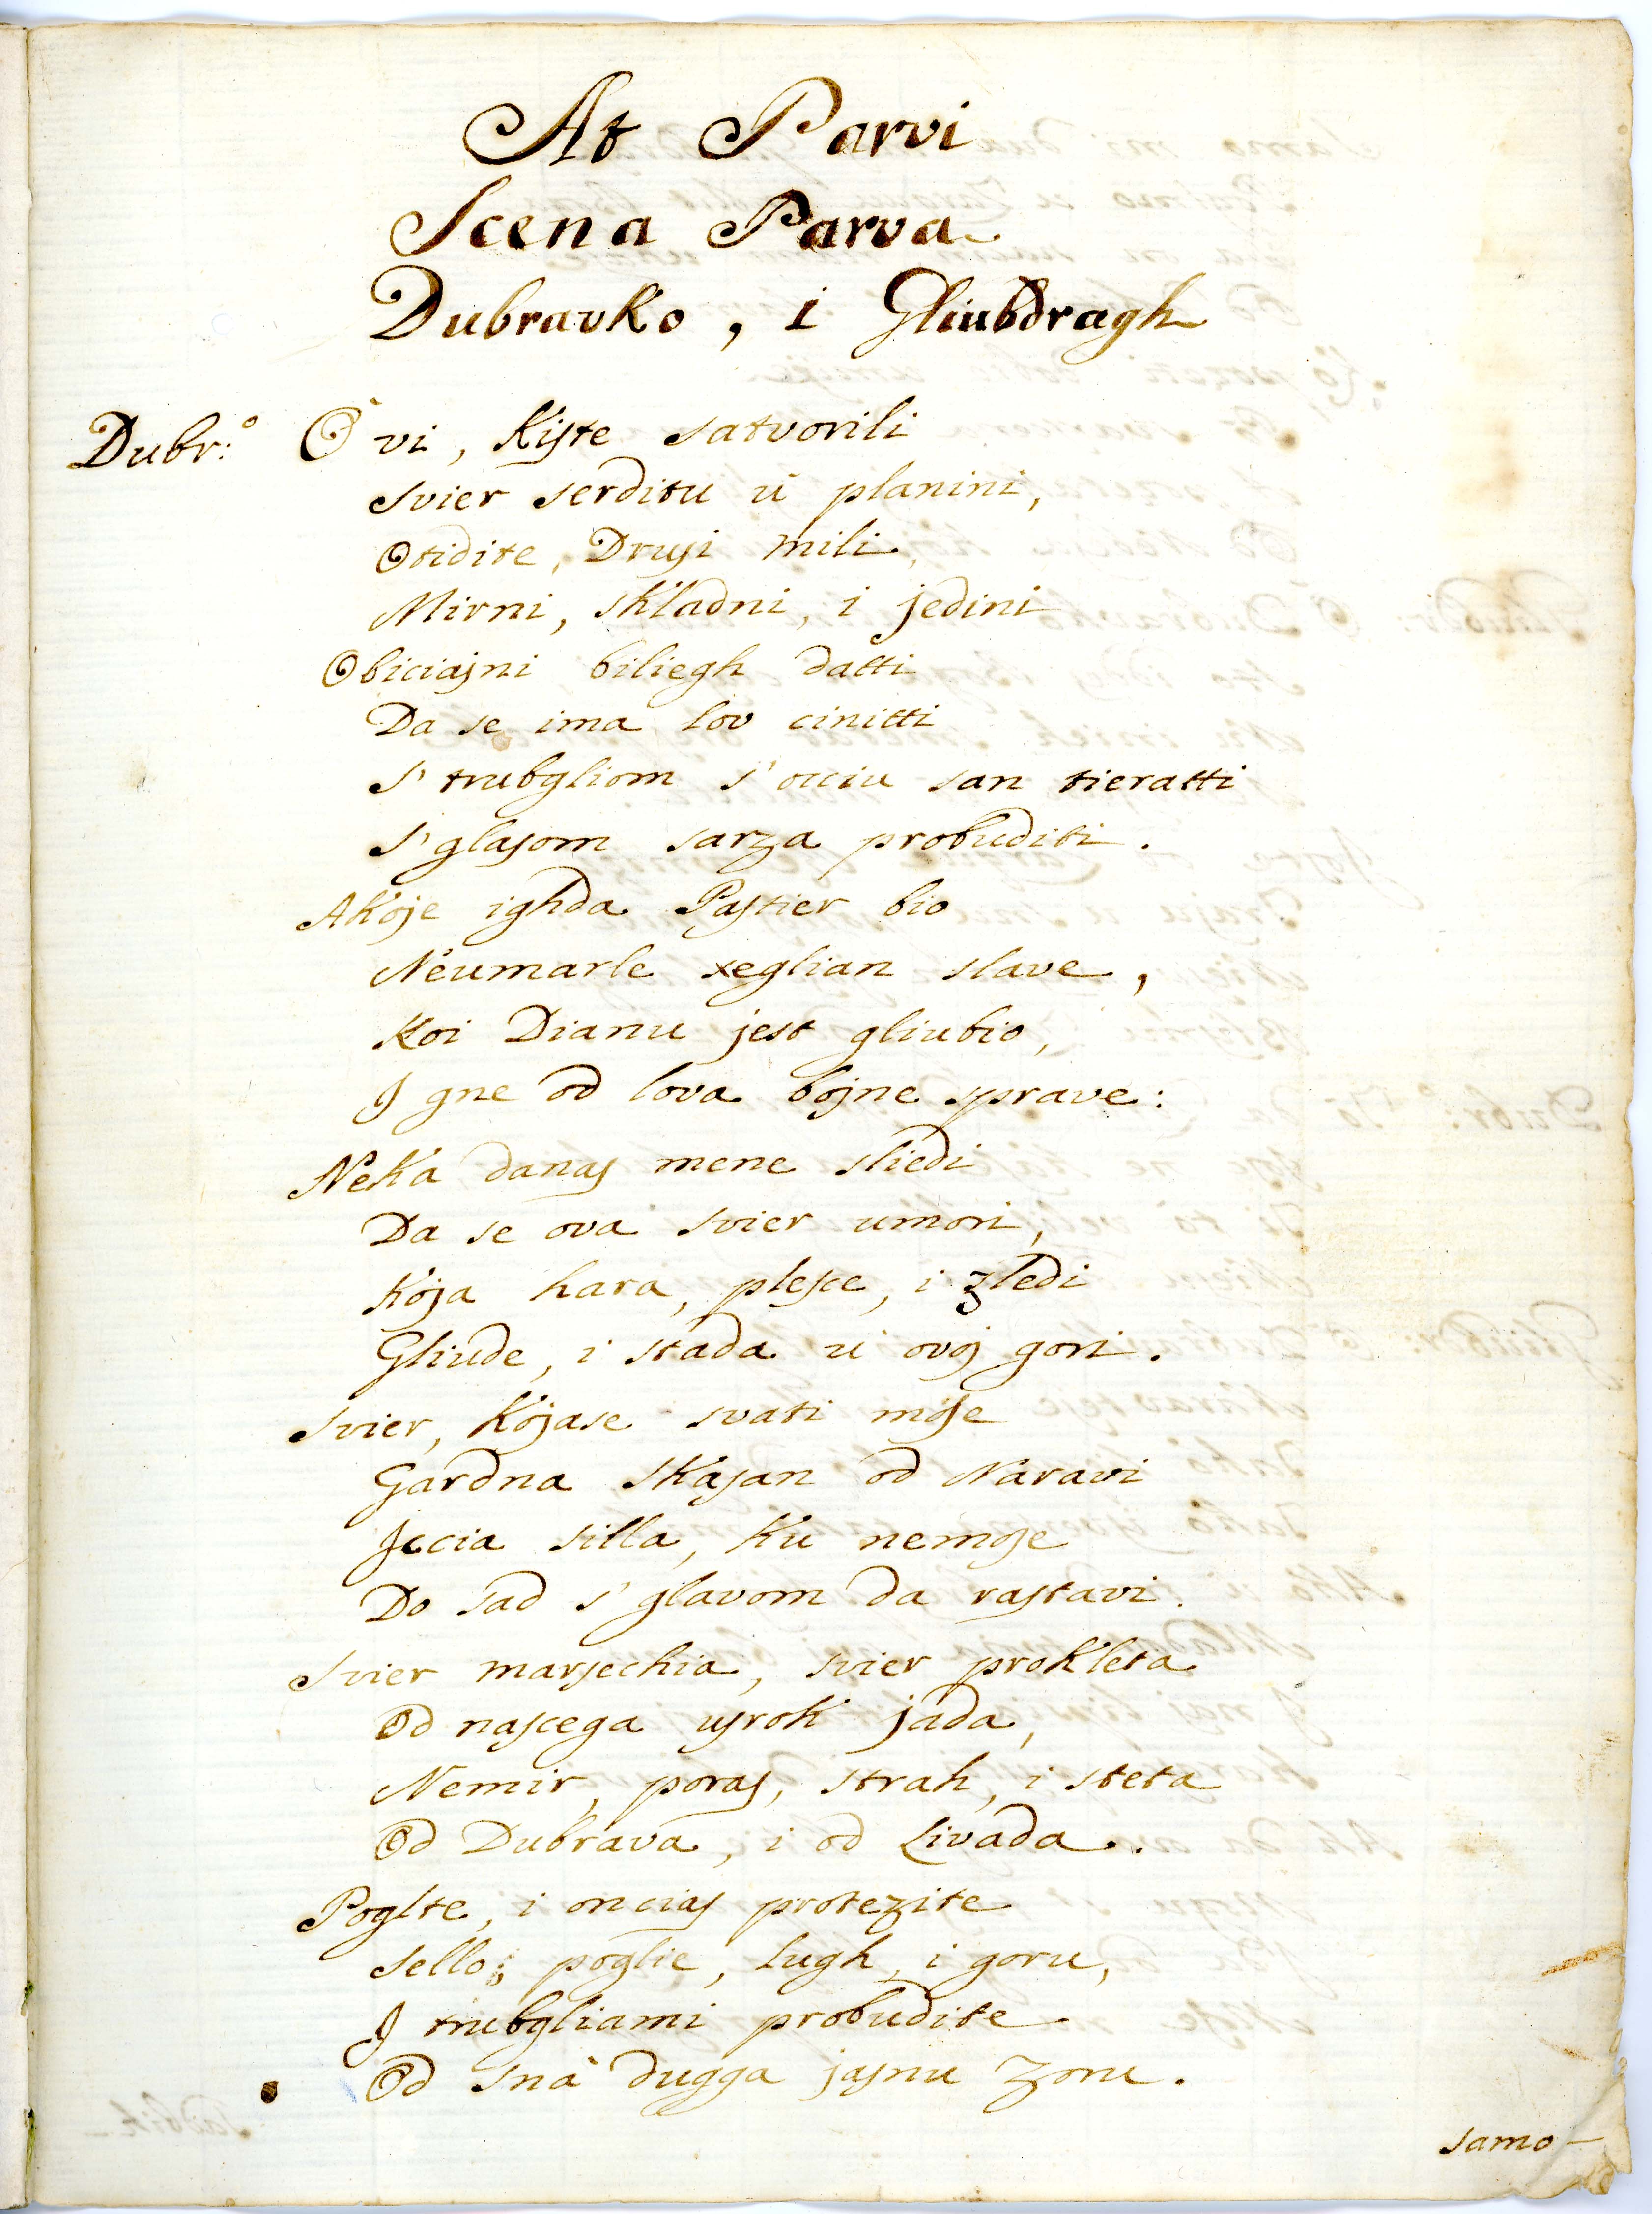 At Parvi
Scena Parva
Dubravko, i Gliubdragh
Dubr:º O vi, kiste satvorili
svier serditu ù planini,
Otidite, Drusi mili,
Mirni, skladni, i jedini
Obiciajni biliegh datti
Da se ima lov cinitti
s' trubgliom s' occiu san tieratti
s' glasom sarza probuditi.
Akoje ighda Pastier bio
Neumarle xeglian slave,
Koi Dianu jest gliubio,
I gne od lova bojne sprave:
Neka danas mene sliedi
Da se ova svier umori,
Koja hara, plesce, i zledi
Gliude, i stada ù ovoj gori.
svier, kojase svati mose
Gardna skasan od Naravi
Jccia silla, ku nemose
Do sad s' glavom da rastavi.
svier marsechia, svier prokleta
Od nascega usrok jada,
Nemir, poras, strah, i steta
Od Dubrava, i od Livada.
Poglte, i oncias protezite
sello, poglie, lugh, i goru,
I trubgliami probudite
Od snà dugga jasnu Zoru.
samo